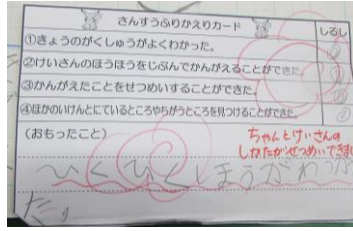 さんすうふりかえりカード
しるし
①きょうのがくしゅうがよくわかった。
②けいさんのほうほうをじぶんでかんがえることができた。
③かんがえたことをせつめいすることができた。
④ほかのいけんとにているところやちがうところを見つけることができた。
(おもったこと)
ちゃんとけいさんの
しかたがせつめいできま
ひくひくしほうがわ
た。